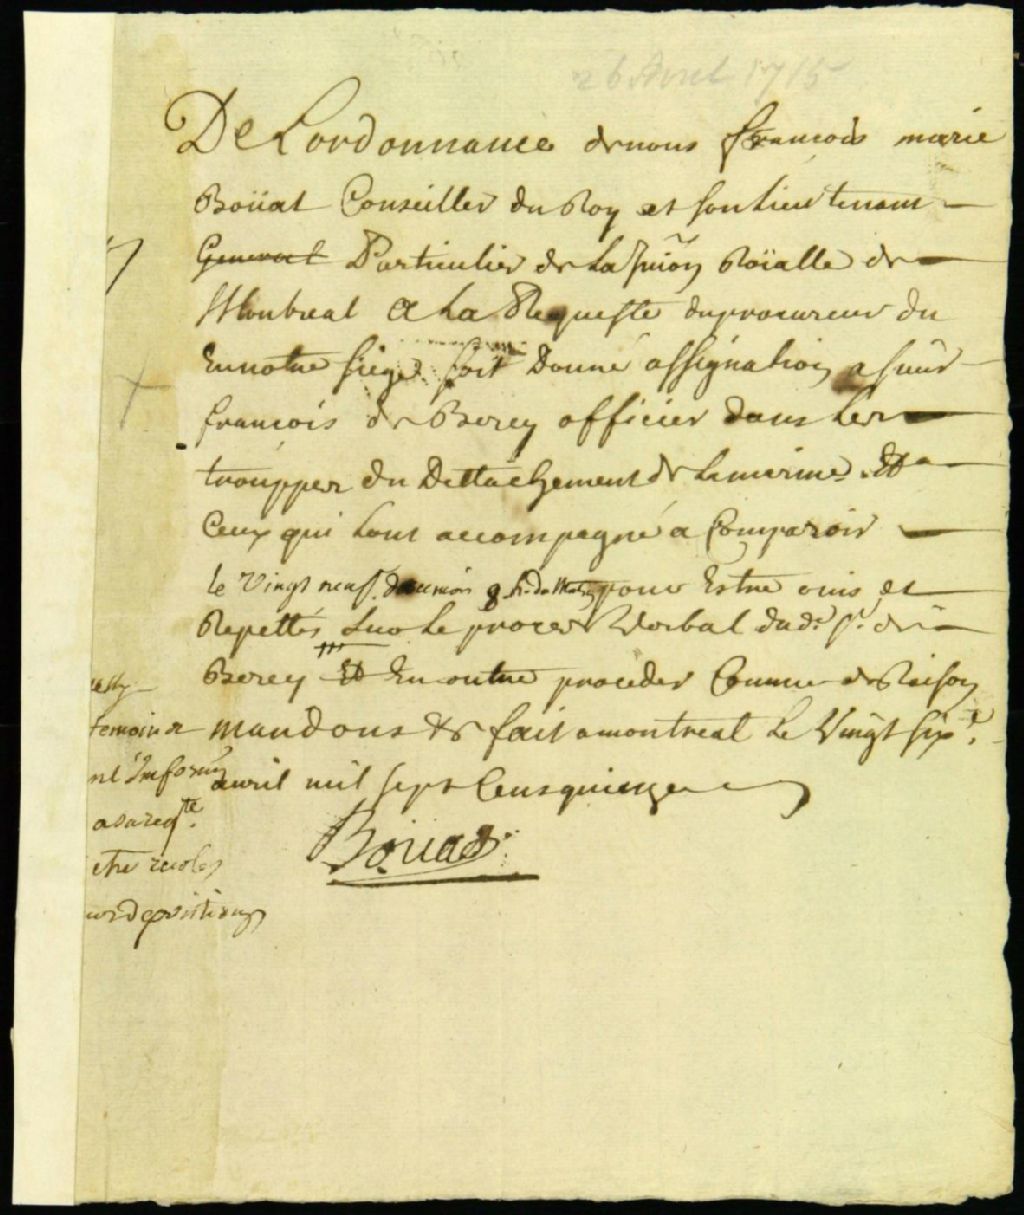 26 Avril 1715
De Lordonnance de nous francois marie
Boüat Conseiller du Roy et son Lieutenant
General Particulier de La Jur͠on Roïalle de
Montreal A La Requeste du procureur du
En notre siege soit Donné assignation a sieur
francois de Berey officier dans Les
trouppes du Dettachement de La marine Et a
Ceux qui Lont accompagné a Comparoir
le Vingt neuf du mois 8 h. de Matin pour Estre ouis et
Repettés Sur Le proces Verbal dud. Sr. de
Berey Et En outre proceder Comme de Raison
mandons &c fait a montreal Le Vingt sixe.
avril mil sept Cens quinze
Boüat
temoins
nt Informé
a sa reqte.
etre recolés
depositions